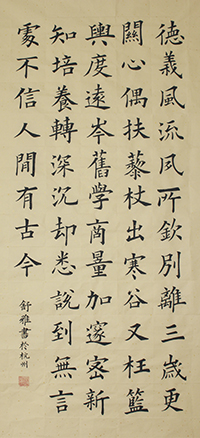 德義風流夙所欽別離三歲更
關心偶扶藜杖出寒谷又枉籃
輿度遠岑舊學商量加邃密新
知培養轉深沉却悉說到無言
處不信人閒有古今
舒雅書於杭州